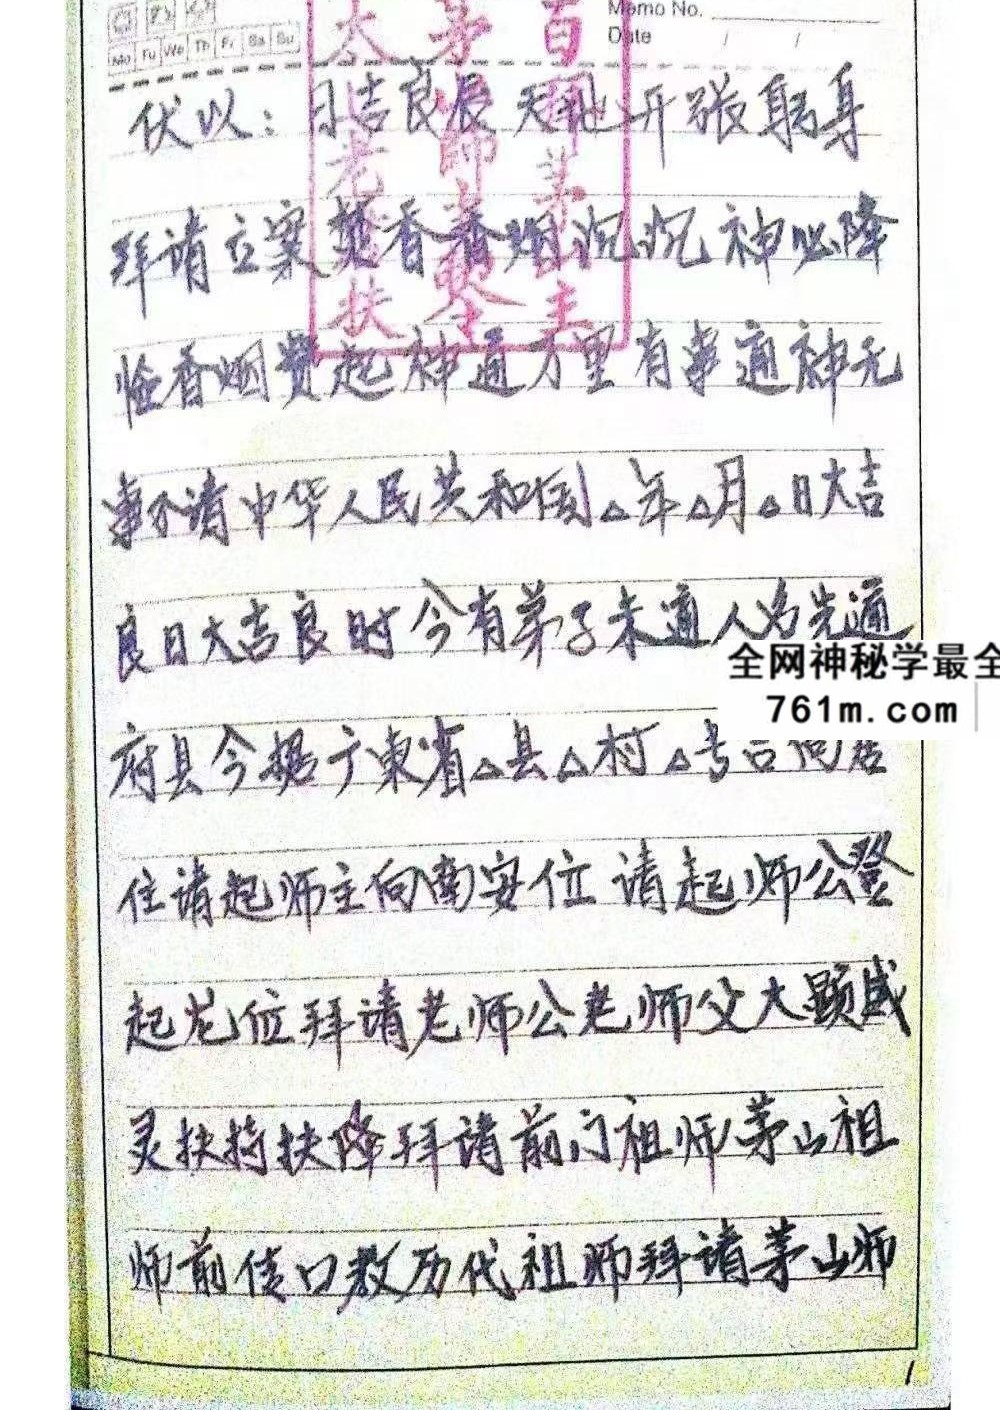 Memo No.
Date / /
Mo Tu We Th Fr Sa Su
伏以：日吉良辰天地开张躬身
拜请立案焚香香烟沉沉神必降
临香烟贯起神通万里有事通神无
事不请中华人民共和国△年△月△日大吉
良日大吉良时今有弟子未通人名先通
全网神秘学最全
761m.com
府县今据广东省△县△村△
住请起师主向南安位请起师公登
起龙位拜请老师公老师父大显威
灵扶持扶降拜请前门祖师茅山祖
师前传口教历代祖师拜请茅山师
1